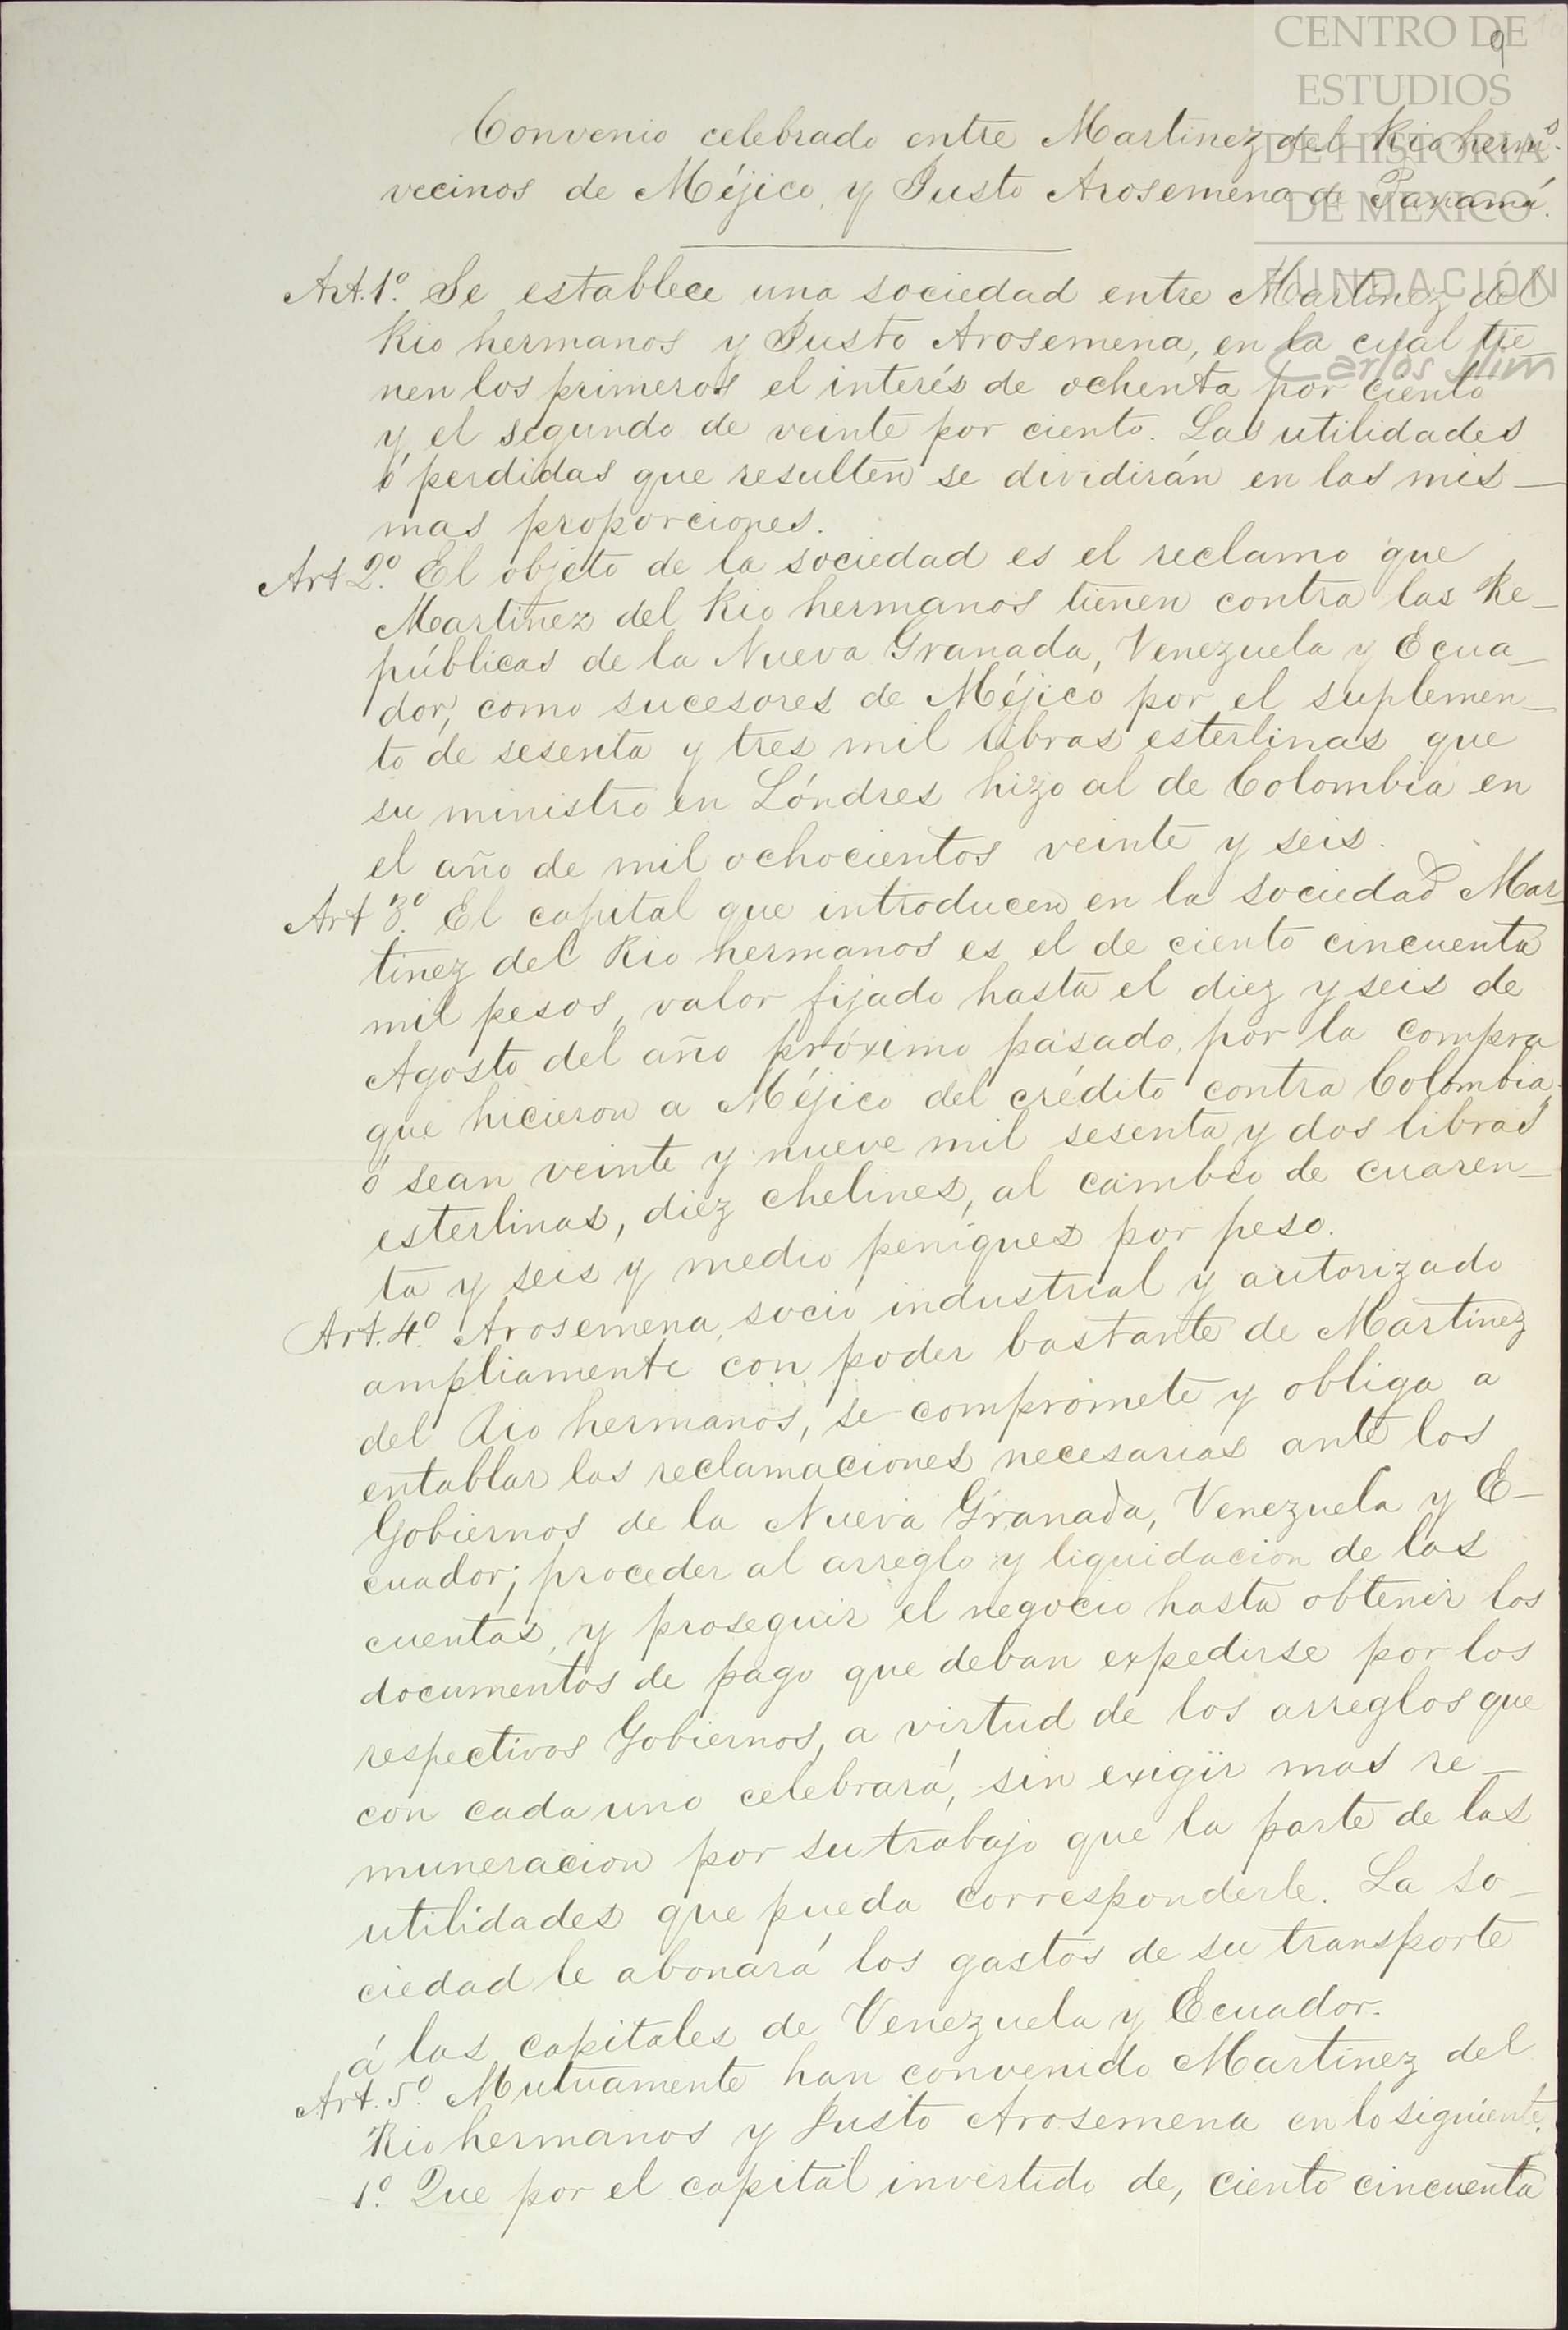 CENTRO DE
ESTUDIOS
DE HISTORIA
DE MEXICO
FUNDACIÓN
Carlos Slim
9
Convenio celebrado entre Martinez del Rio herm.s
vecinos de Méjico, y Justo Arosemena de Panamá.
Art. 1.º Se establece una sociedad entre Martinez del
Rio hermanos y Justo Arosemena, en la cual tie
nen los primeros el interés de ochenta por ciento
y el segundo de veinte por ciento. Las utilidades
ó perdidas que resulten se dividirán en las mis-
mas proporciones.
Art 2.º El objeto de la sociedad es el reclamo que
Martinez del Rio hermanos tienen contra las Re-
públicas de la Nueva Granada, Venezuela y Ecua-
dor, como sucesores de Méjico por el suplemen-
to de sesenta y tres mil libras esterlinas que
su ministro en Lóndres hizo al de Colombia en
el año de mil ochocientos veinte y seis.
Art 3.º El capital que introducen en la sociedad Mar
tinez del Rio hermanos es el de ciento cincuenta
mil pesos, valor fijado hasta el diez y seis de
Agosto del año próximo pasado, por la compra
que hicieron a Méjico del crédito contra Colombia,
ó sean veinte y nueve mil sesenta y dos libras
esterlinas, diez chelines, al cambio de cuaren-
ta y seis y medio peniques por peso.
Art. 4.º Arosemena, socio industrial y autorizado
ampliamente con poder bastante de Martinez
del Rio hermanos, se compromete y obliga a
entablar las reclamaciones necesarias ante los
Gobiernos de la Nueva Granada, Venezuela y E-
cuador; proceder al arreglo y liquidacion de las
cuentas, y proseguir el negocio hasta obtenir los
documentos de pago que deban expedirse por los
respectivos Gobiernos, a virtud de los arreglos que
con cada uno celebrará, sin exigir mas re-
muneracion por su trabajo que la parte de las
utilidades que pueda corresponderle. La so-
ciedad le abonará los gastos de su transporte
á las capitales de Venezuela y Ecuador.
Art. 5.º Mutuamente han convenido Martinez del
Rio hermanos y Justo Arosemena en lo siguiente.
1.º Que por el capital invertido de, ciento cincuenta